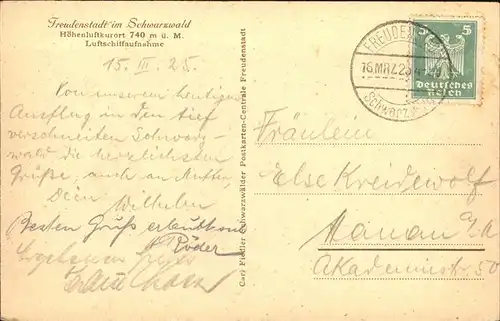 Freudenstadt im Schwarzwald
Höhenluftkurort 740 m ü. M.
Luftschiffaufnahme
15. III. 25.
Von unserem heutigen
Ausflug in den tief
verschneiten Schwarz-
wald die herzlichsten
Grüße, auch an Mutter,
Dein
Wilhelm
Besten Gruß erlaubt sich
Röder
Carl Fiedler Schwarzwälder Postkarten-Centrale Freudenstadt
FREUDEN
16.MRZ.25
Schwarz
5 5
Deutsches
Reich
Fräulein
Else Kreidewolf
Hanau a/M
Akademiestr 50